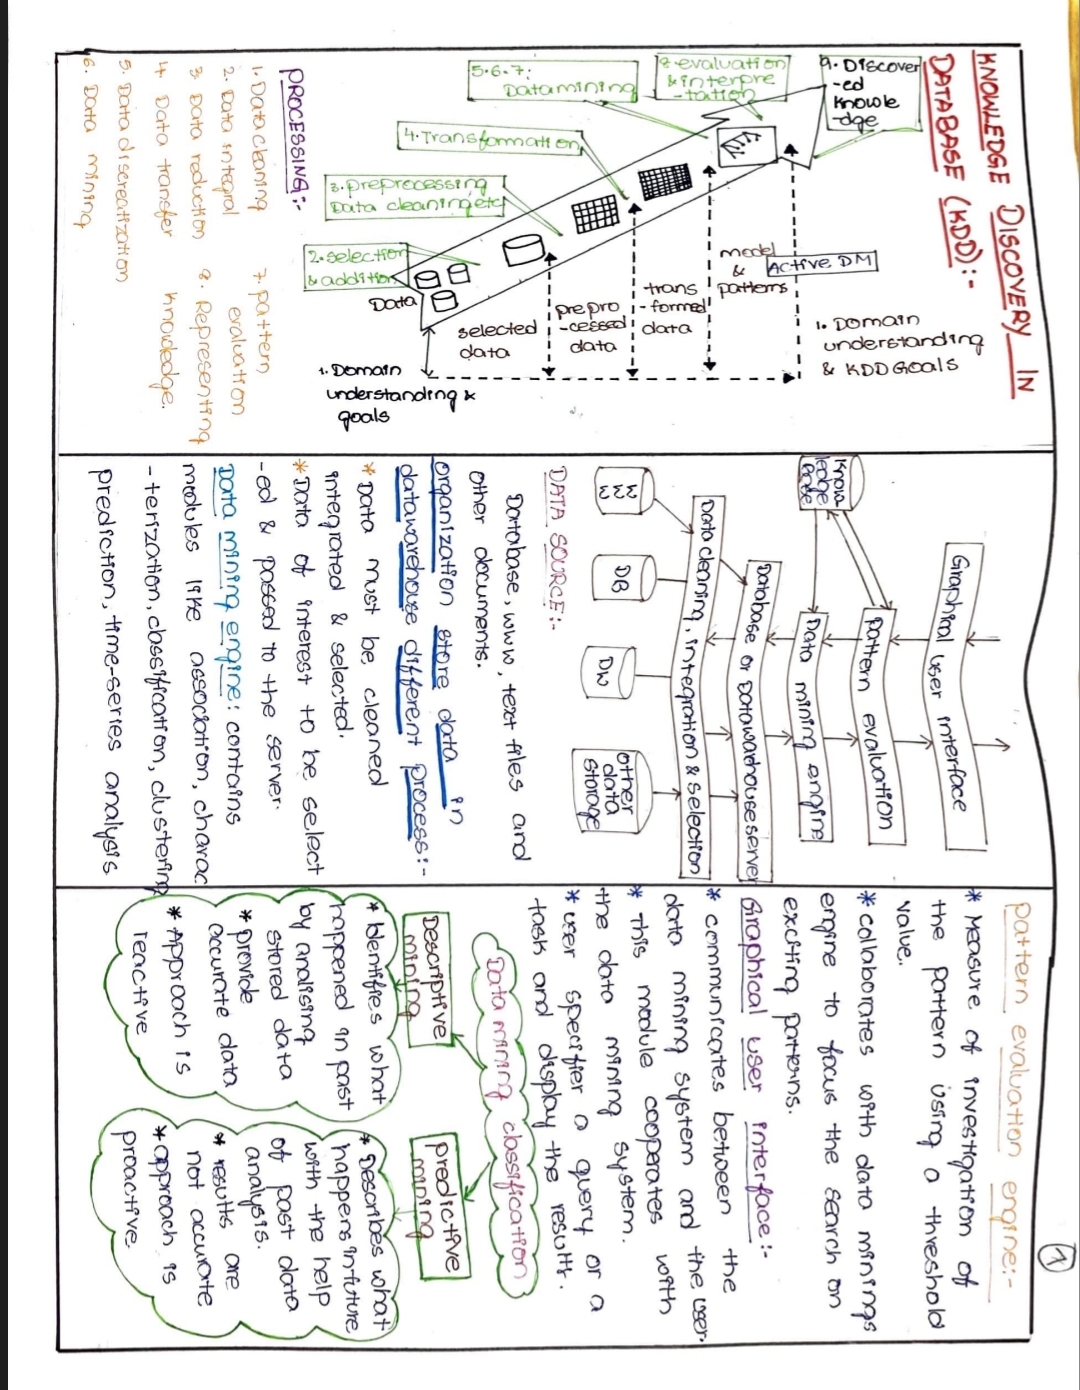 1
KNOWLEDGE DISCOVERY IN
DATABASE (KDD):-
9. Discover
-ed
knowle
-dge
8. evaluation
& interpre
-tation
5.6.7:
Datamining
4. Transformation
3. preprocessing
Data cleaning etc
2. selection
& addition
Data
selected
data
prepro
-cessed
data
trans
-formed
data
model
&
patterns
Active DM
1. Domain
understanding
& KDD Goals
1. Domain
understanding &
goals
PROCESSING:-
1. Data cleaning
2. Data integral
3. Data reduction
4. Data transfer
5. Data discreatization
6. Data mining
7. pattern
evaluation
8. Representing
knowledge.
Graphical user interface
Pattern evaluation
Know
ledge
Base
Data mining engine
Database or Datawarehouse server
Data cleaning, integration & selection
WWW
DB
DW
other
data
storage
DATA SOURCE:-
Database, www, text files and
other documents.
Organization store data in
datawarehouse different process:-
* Data must be cleaned
integrated & selected.
* Data of interest to be select
-ed & passed to the server.
Data mining engine: contains
modules like association, charac
-terization, classification, clustering
prediction, time-series analysis
pattern evaluation engine:-
* Measure of investigation of
the pattern using a threshold
value.
* collaborates with data minings
engine to focus the search on
exciting patterns.
Graphical user interface:-
* communicates between the
data mining system and the user.
* This module cooperates with
the data mining system.
* user specifier a query or a
task and display the results.
Data mining classification
Descriptive
mining
* Identifies what
happened in past
by analising
stored data
* provide
accurate data
* Approach is
reactive
predictive
mining
* Describes what
happens in future
with the help
of past data
analysis.
* results are
not accurate
* approach is
proactive